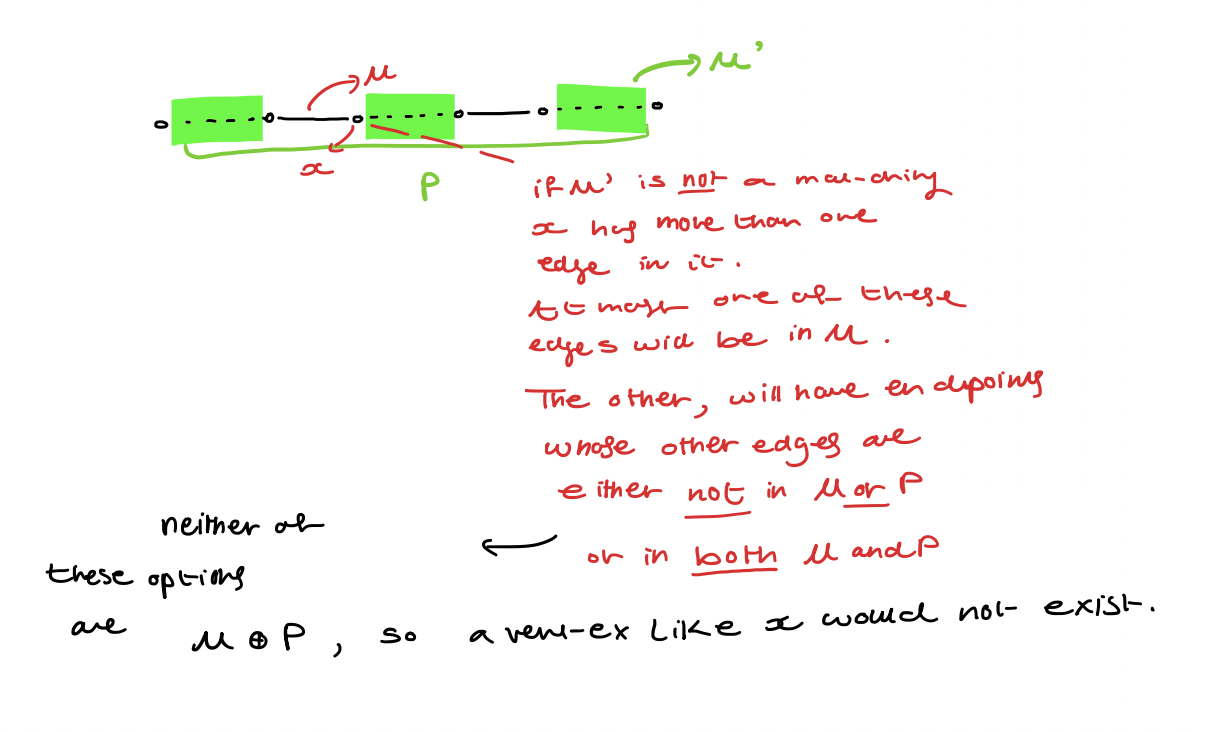 M'
M
x
P
if M' is not a matching
x has more than one
edge in it.
At most one of these
edges will be in M.
The other, will have endpoints
whose other edges are
either not in M or P
or in both M and P
neither of
these options
are M ⊕ P, so a vertex like x would not exist.